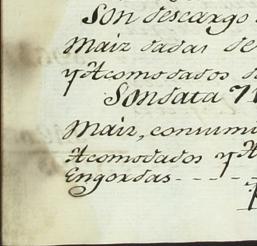 Son descargo
Maiz dadas de
y Acomodados
Son data 71
Maiz, consumi
Acomodados y
Engordas